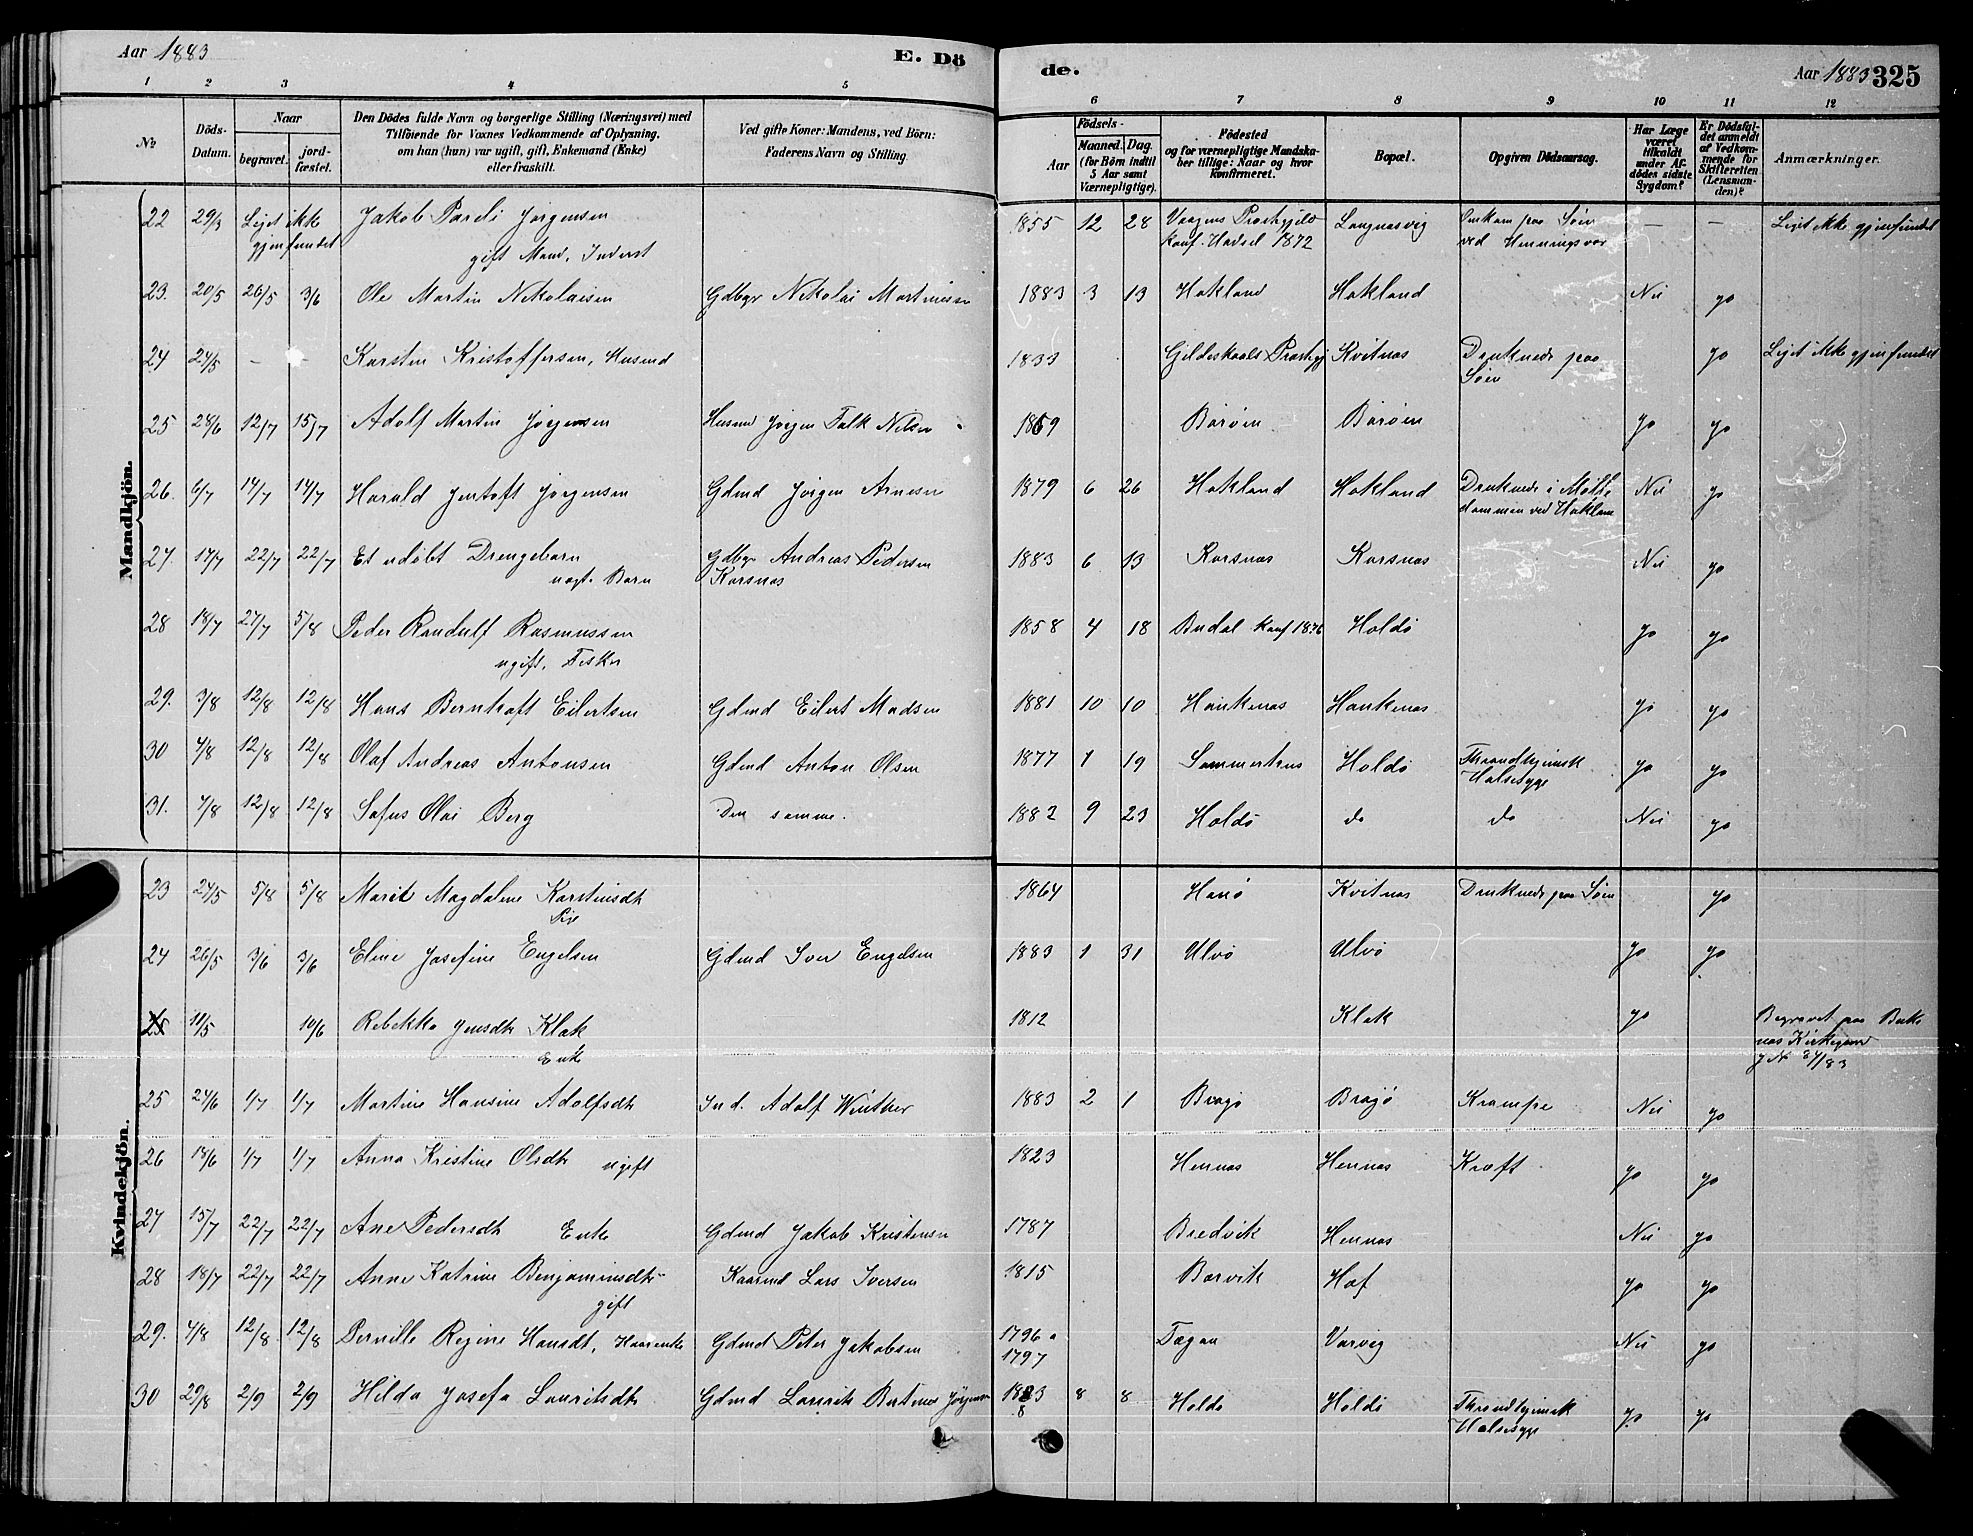 Aar 1883
E. Dö
de.
Aar 1883 325
1 2 3 4 5 6 7 8 9 10 11 12
№
Döds-Datum.
Naar
begravet. jordfæstet.
Den Dödes fulde Navn og borgerlige Stilling (Næringsvei) med
Tilföiende for Voxnes Vedkommende af Oplysning,
om han (hun) var ugift, gift, Enkemand (Enke)
eller fraskilt.
Ved gifte Koner: Mandens, ved Börn:
Faderens Navn og Stilling.
Födsels-
Aar Maaned. Dag.
(for Börn indtil
5 Aar samt
Værnepligtige).
Födested
og for værnepligtige Mandska-
ber tillige: Naar og hvor
konfirmeret.
Bopæl.
Opgiven Dödsaarsag.
Har Læge
været
tilkaldt
under Af-
dödes sidste
Sygdom?
Er Dödsfal-
det anmeldt
af Vedkom-
mende for
Skifteretten
(Lensman-
den)?
Anmærkninger.
Mandkjön.
22 29/3 Liget ikke Jakob Jørgensen 1855 12 28 Vaagens Langnæsvig Omkom paa Søen — — Liget ikke gjenfundet
gjenfundet gift Mand, Inderst konf. Hadsel 1872 ved Henningsvær
23. 20/5 26/5 3/6 Ole Martin Nikolaisen Gdbgr Nikolai Martinsen 1883 3 13 Hakland Hakland Nei ja
24 24/5 — — Karsten Kristoffersen, Husmd 1833 Gildeskaals Præstgj Kvitnæs Druknede paa ja Liget ikke gjenfundet
Søen
25 28/6 12/7 15/7 Adolf Martin Jørgensen Husmd Jørgen Falk Nilsen 1869 Børøen Børøen ja ja
26. 6/7 14/7 14/7 Harald Jentoft Jørgensen Gdmd Jørgen Arnesen 1879 6 26 Hakland Hakland Druknede i Mølle Nei ja
dammen ved Hakland
27. 17/7 22/7 22/7 Et udøbt Drengebarn Gdbgr Andreas Pedersen 1883 6 13 Korsnæs Korsnæs Nei ja
uægte Barn Korsnæs
28 18/7 27/7 5/8 Peder Randulf Rasmussen 1858 4 18 Budal konf 1876 Holdø ja ja
ugift, Fisker
29. 3/8 12/8 12/8 Hans Berntoft Eilertsen Gdmd Eilert Madsen 1881 10 10 Haukenæs Haukenæs ja ja
30 4/8 12/8 12/8 Olaf Andreas Antonsen Gdmd Anton Olsen 1877 1 19 Sommerhus Holdø Throndhjemsk ja ja
Halssyge
31. 7/8 12/8 12/8 Sofus Olai Berg Den samme. 1882 9 23 Holdø do do Nei ja
Kvindekjön.
23 24/5 5/8 5/8 Marit Magdalene Karstensdtr 1864 Hanø Kvitnæs Druknede paa Søen ja
Pige
24 26/5 3/6 3/6 Eline Josefine Engelsen Gdmd Iver Engelsen 1883 1 31 Ulvø Ulvø ja ja
25 11/5 10/6 Rebekka Jensdtr Klak 1812 Klak ja Begravet paa Buks
Enke næs Kirkegaard
J N 84/83
25 24/6 1/7 1/7 Martine Hansine Adolfsdtr Ind. Adolf Winther 1883 2 1 Brøgø Brøgø Krampe Nei ja
26 18/6 1/7 1/7 Anna Kristine Olsdtr ugift 1823 Hennæs Hennæs Kræft ja ja
27 15/7 22/7 22/7 Ane Pedersdtr Enke Gdmd Jakob Kristensen 1787 Bredvik Hennæs Nei ja
28 18/7 22/7 22/7 Anne Katrine Benjaminsdtr Kaarmd Lars Iversen 1815 Børvik Hof ja ja
gift
29. 4/8 12/8 12/8 Pernille Regine Hansdt, Kaarenke Gdmd Peter Jakobsen 1796 a Vorvig Nei ja
1797
30 29/8 2/9 2/9 Hilda Josefa Lauritsdtr Gdmd Laurits Jørgensen 1883 8 8 Holdø Holdø Throndhjemsk ja ja
8 Halssyge